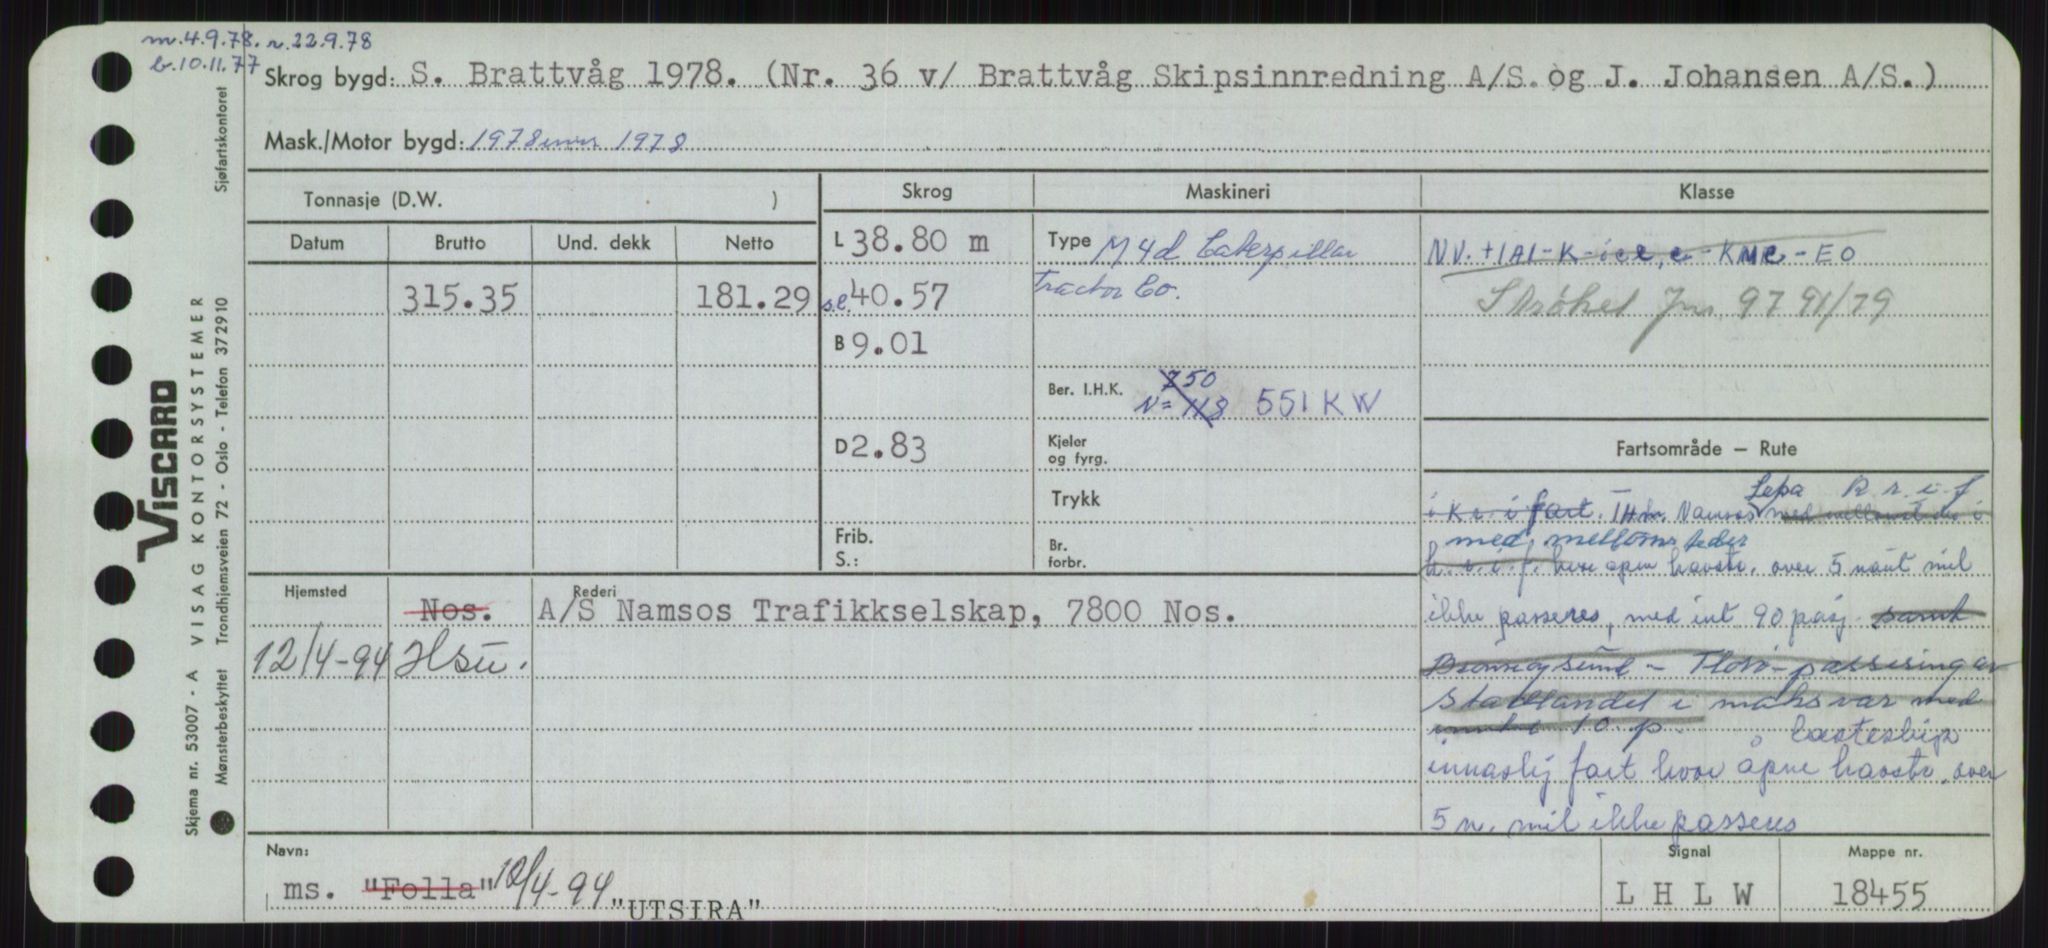 m. 4.9.78. r. 22.9.78
b. 10.11.77
Skrog bygd: S. Brattvåg 1978. (Nr. 36 v/ Brattvåg Skipsinnredning A/S. og J. Johansen A/S.)
Mask./Motor bygd: 1978 1978
Tonnasje (D.W. )
Skrog
Maskineri
Klasse
Datum
Brutto
Und. dekk
Netto
L 38.80 m
Type M 4d Caterpillar
Tractor Co.
NV. +1A1-K-ice, c - KMC - EO
315.35
181.29
s.l. 40.57
Strøket Jnr. 97 91/79
B 9.01
Ber. I.H.K. 750
N= 118 551 KW
D 2.83
Kjeler
og fyrg.
Fartsområde – Rute
Trykk
Frib.
S.:
Br.
forbr.
Leka R r. i f
i K r. i fart. THm. Namsos
med mellomsteder
k. r. i. f. hvor åpne havstr. over 5 naut mil
ikke passeres, med int 90 pasj.
Brønnøysund - Florø - passering av
Stadtlandet i mahsvar med
10 p.
lasteskip
innaskj fart hvor åpne havstr. over
5 n. mil ikke passeres
Hjemsted
Rederi
Nos. A/S Namsos Trafikkselskap, 7800 Nos.
12/4-94 Hsu.
Navn:
ms. "Folla" 12/4-94
"UTSIRA"
Signal
L H L W
Mappe nr.
18455
VISCARD
Skjema nr. 53007 - A VISAG KONTORSYSTEMER
Mønsterbeskyttet Trondhjemsveien 72 - Oslo - Telefon 372910
Sjøfartskontoret